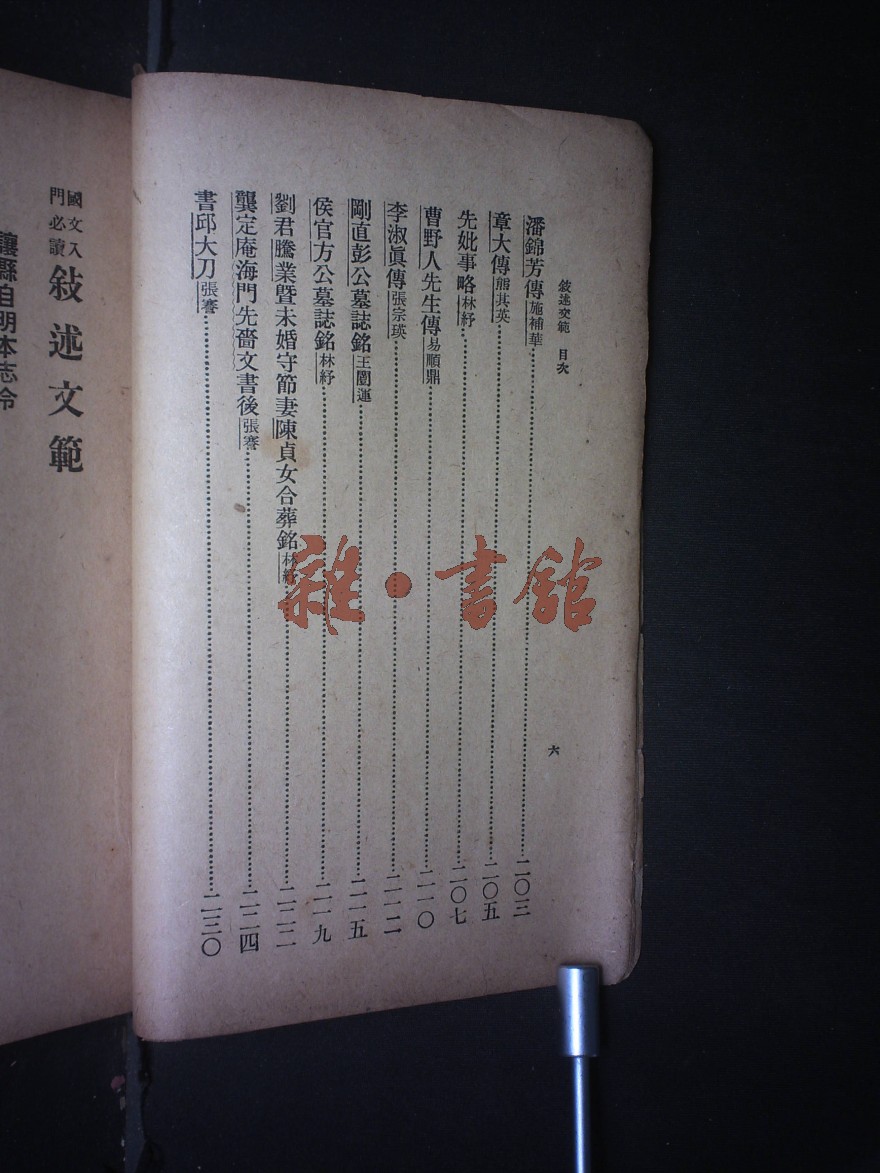 敍述文範　目次
六
潘錦芳傳施補華……二〇三
章大傳熊其英……二〇五
先妣事略林紓……二〇七
曹野人先生傳易順鼎……二一〇
李淑眞傳張宗瑛……二一二
剛直彭公墓誌銘王闓運……二一五
侯官方公墓誌銘林紓……二一九
劉君騰業暨未婚守節妻陳貞女合葬銘林紓……二二二
龔定庵海門先嗇文書後張謇……二二四
書邱大刀張謇……二三〇
國文入
門必讀
敍述文範
讓縣自明本志令
雜·書館